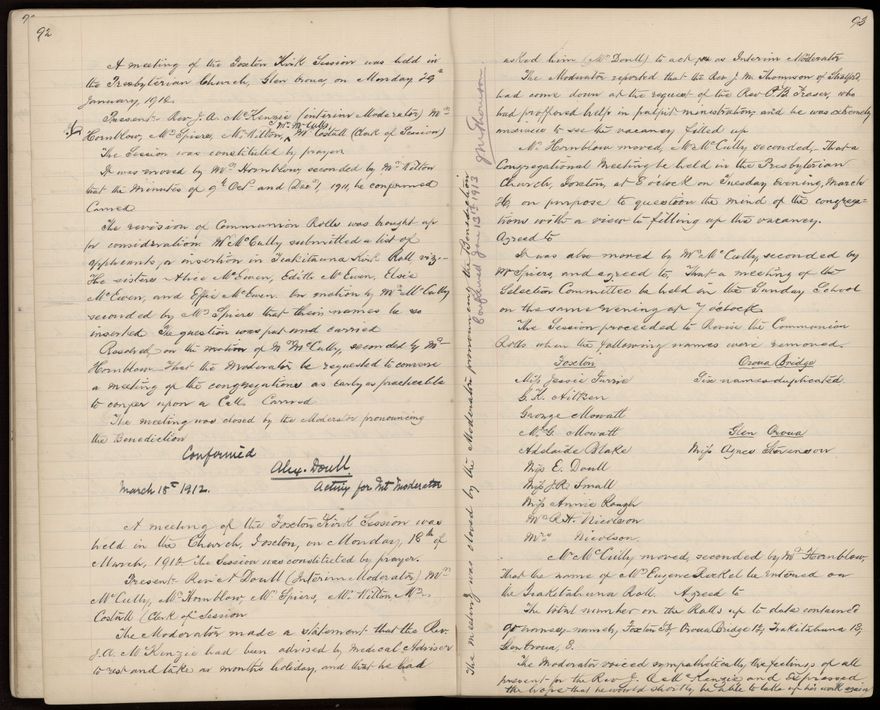 92
A meeting of the Foxton Kirk Session was held in
the Presbyterian Church, Glen Oroua, on Monday 29th
January, 1912.
Present:- Rev. J. A. McKenzie (interim Moderator) Mr
Hornblow, Mr Spiers, Mr Wilton, Mr McCully, Mr Costall (Clerk of Session)
The Session was constituted by prayer
It was moved by Mr Hornblow, seconded by Mr Wilton
that the minutes of 9th Oct and Dec 1, 1911, be confirmed
Carried
The revision of Communion Rolls was brought up
for consideration. Mr McCully submitted a list of
applicants for insertion in Kirk Roll viz:-
The sisters Alice McEwen, Edith McEwen, Elsie
McEwen, and Effie McEwen. On motion by Mr McCully
seconded by Mr Spiers that their names be so
inserted the question was put and carried
Resolved, on the motion of Mr McCully, seconded by Mr
Hornblow. That the Moderator be requested to convene
a meeting of the congregations as early as practicable
to confer upon a Call. Carried
The meeting was closed by the Moderator pronouncing
the Benediction
Confirmed
Alex. Doull
March 18th 1912. Acting for Int Moderator
A meeting of the Foxton Kirk Session was
held in the Church, Foxton, on Monday, 18th of
March, 1912. The Session was constituted by prayer.
Present:- Rev A Doull (Interim Moderator) Mr
McCully, Mr Hornblow, Mr Spiers, Mr Wilton Mr
Costall (Clerk of Session
The Moderator made a statement that the Rev.
J. A. McKenzie had been advised by medical Adviser
to rest and take a months holiday, and that he had
93
asked him (Mr Doull) to act as Interim Moderator
The Moderator reported that the Rev. J. M. Thomson of
had come down at the request of the Rev Fraser, who
had proffered help in pulpit ministration, and he was extremely
anxious to see the vacancy filled up
Mr Hornblow moved, Mr McCully seconded,- That a
Congregational Meeting be held in the Presbyterian
Church, Foxton, at 8 o'clock on Tuesday evening, March
26, on purpose to question the mind of the congrega-
tions with a view to filling up the vacancy.
Agreed to
It was also moved by Mr McCully, seconded by
Mr Spiers, and agreed to, That a meeting of the
Selection Committee be held in the Sunday School
on the same evening at 7 o'clock
The Session proceeded to Revise the Communion
Rolls when the following names were removed.
Foxton Oroua Bridge
Miss Jessie Six names duplicated.
G. K. Aitken
George Mowatt
Mr G. Mowatt Glen Oroua
Adelaide Blake Miss Agnes Stevenson
Miss E. Doull
Miss J. R. Small
Miss Annie Rough
Mr R. H. Nicolson
Mrs Nicolson.
Mr McCully moved, seconded by Mr Hornblow,
That the name of Mr Eugene be entered on
the Roll. Agreed to
The total number on the Rolls up to date contained
names, namely, Foxton Oroua Bridge
Glen Oroua, 8.
The Moderator voiced sympathetically the feelings of all
present for the Rev J. A McKenzie and expressed
the hope that he would shortly be able to take up his work again
The meeting was closed by the Moderator pronouncing the Benediction
Confirmed June 13th 1913 J M Thomson